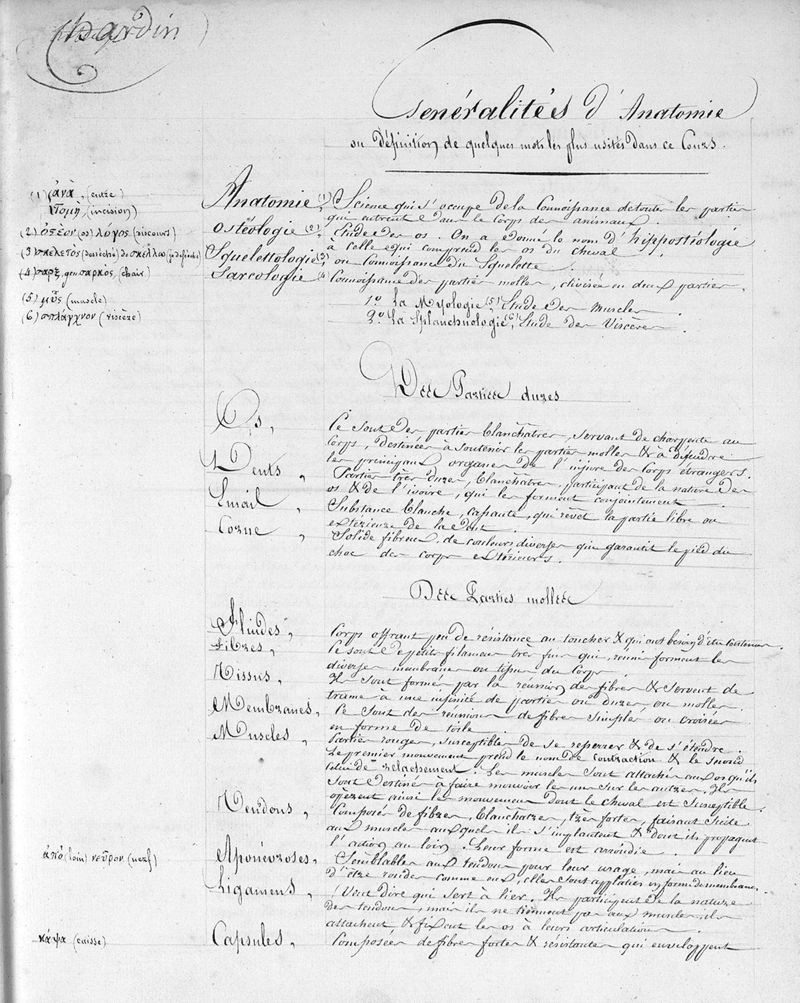 Jardin
Généralités d'Anatomie
ou Définition de quelques mots les plus usités dans ce Cours.
(1) ἀνὰ (entre)
τομὴ (incision)
(2) ὀξέον (os) λόγος (discours)
(3) σκελετὸς σκέλλω
(4) σαρξ, gen σαρκος (chair)
(5) μῦς (muscle)
(6) σπλάγχνον (viscère)
Anatomie (1) Science qui s'occupe de la Connoissance de toute les partier
qui entrent dans le Corps des animaux.
Ostéologie (2) Etude des os. On a donné le nom d'hippostéologie
à Celle qui comprend les os du cheval.
Squelettologie (3) ou Connoissance du Squelette.
Sarcologie (4) Connoissance des parties molles, divisée en deux parties.
1º La Myologie (5) Etude des Muscles.
2º La Splanchnologie (6) Etude des Viscères.
Des Parties dures
Os, Ce sont des parties blanchatres, servant de charpente au
Corps, destinées à soutenir les parties molles & à défendre
les principaux organes de l'injure des Corps étrangers.
Dents, Parties très dures, blanchatres, participant de la nature des
os & de l'ivoire, qui les forment conjointement.
Email, Substance blanche, cassante, qui revêt la partie libre ou
extérieure de la dent.
Corne, Solide fibreux, de couleurs diverses qui garantit le pied du
choc des corps extérieurs.
Des Parties molles
Fluides, Corps offrant peu de résistance au toucher & qui ont besoin d'être contenus.
Fibres, Ce sont de petits filamens très fins qui, réunis forment les
diverses membranes ou tissus du Corps.
Tissus, Ils sont formés par la réunion de fibres & servent de
trame à une infinité de parties ou dures ou molles.
Membranes, Ce sont des réunions de fibres simples ou croisées
en forme de toile.
Muscles, Parties rouges, susceptibles de se resserrer & de s'étendre.
Le premier mouvement prend le nom de contraction & le second
celui de relachement. Les muscles sont attachés aux os qu'ils
sont destinés à faire mouvoir les uns sur les autres. Ils
opèrent ainsi les mouvemens dont le cheval est Susceptible.
Tendons, Composés de fibres, blanchatres, très fortes, faisant suite
aux muscles auxquels ils s'implantent & dont ils propagent
l'action au loin. Leur forme est arrondie.
ἀπὸ (loin) νεῦρον (nerf)
Aponévroses, Semblables aux tendons pour leur usage, mais au lieu
d'être rondes comme eux, elles sont applaties en forme de membranes.
Ligamens, Veut dire qui sert à lier. Ils participent de la nature
des tendons, mais ils ne tiennent pas aux muscles, ils
attachent & fixent les os à leurs articulations.
κάψα (caisse)
Capsules, Composées de fibres fortes & résistantes qui enveloppent